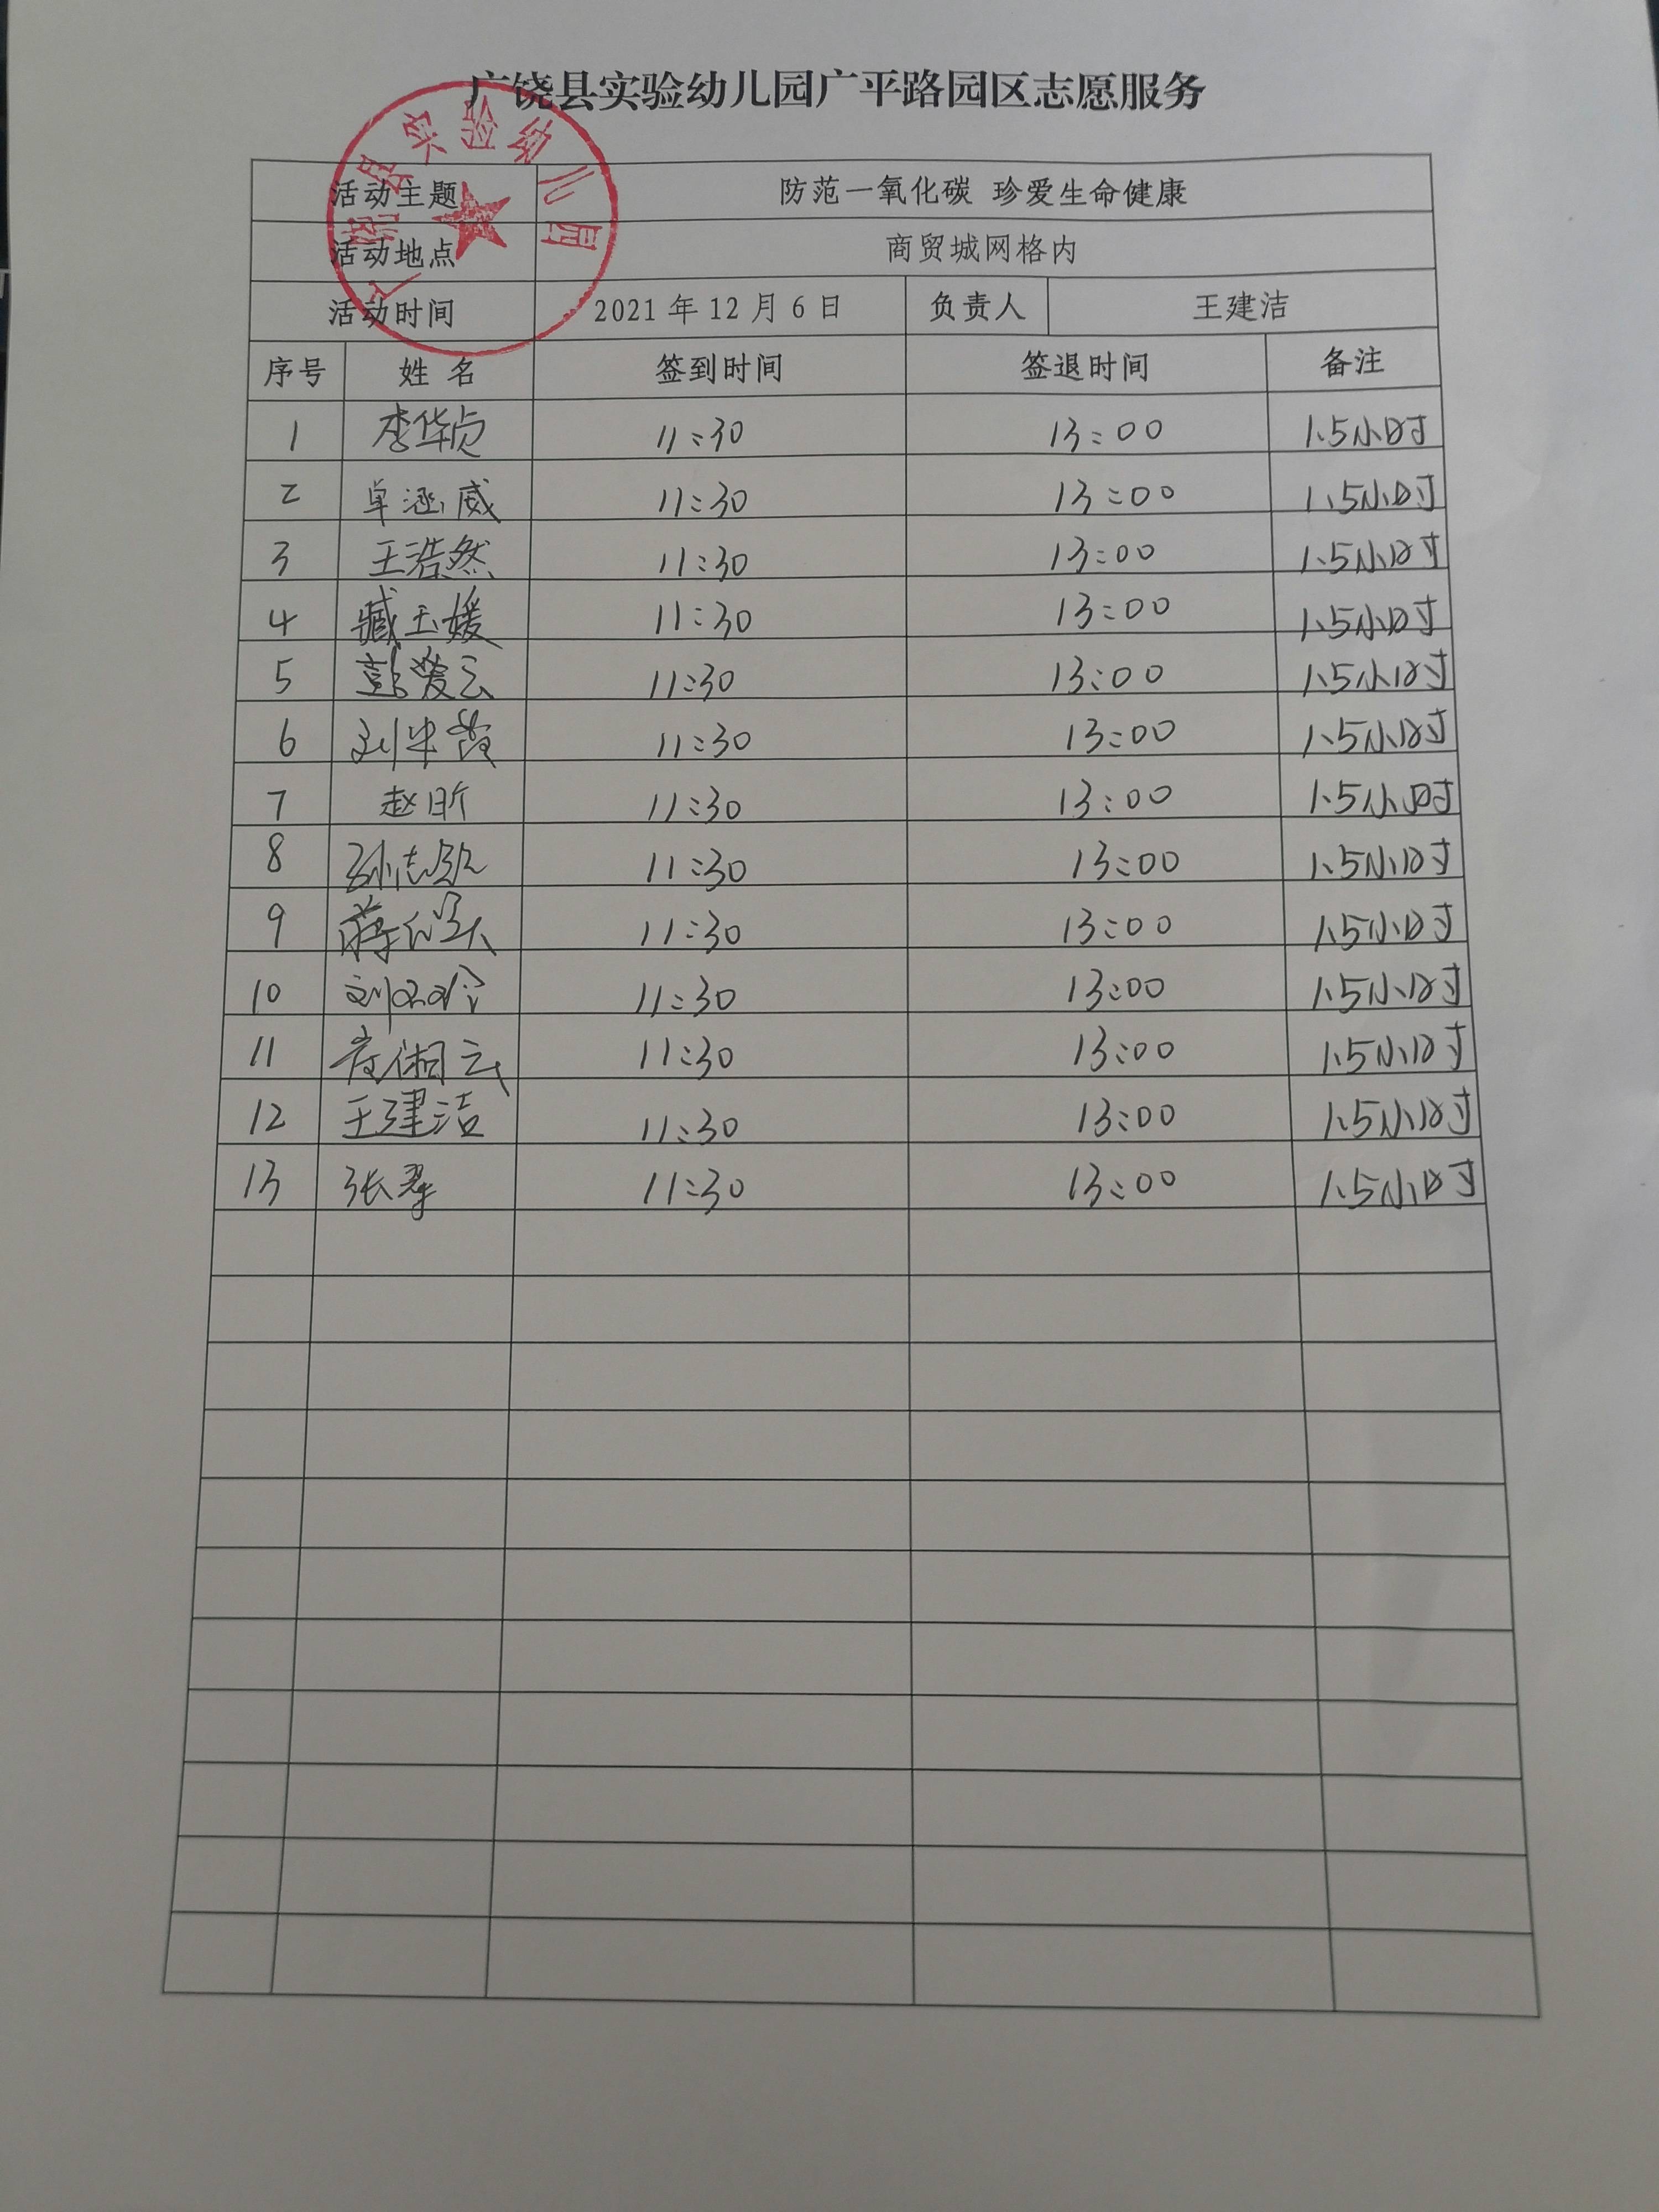 广饶县实验幼儿园广平路园区志愿服务
广饶县实验幼儿园
活动主题 防范一氧化碳 珍爱生命健康
活动地点 商贸城网格内
活动时间 2021年12月6日 负责人 王建洁
序号 姓名 签到时间 签退时间 备注
1 李华贞 11:30 13:00 1.5小时
2 卓涵威 11:30 13:00 1.5小时
3 王浩然 11:30 13:00 1.5小时
4 臧玉媛 11:30 13:00 1.5小时
5 彭爱云 11:30 13:00 1.5小时
6 刘 11:30 13:00 1.5小时
7 赵昕 11:30 13:00 1.5小时
8 孙志 11:30 13:00 1.5小时
9 蒋 11:30 13:00 1.5小时
10 刘 11:30 13:00 1.5小时
11 湘云 11:30 13:00 1.5小时
12 王建洁 11:30 13:00 1.5小时
13 张 11:30 13:00 1.5小时